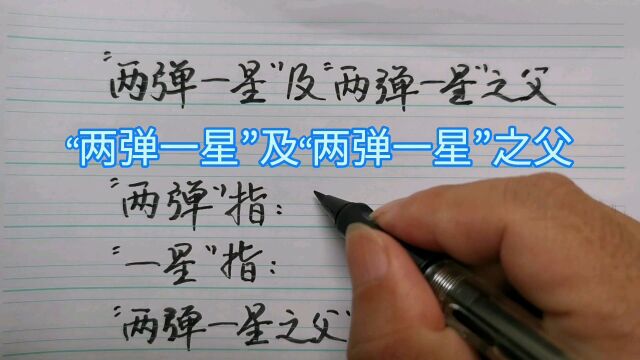 “两弹一星”及“两弹一星”之父
“两弹一星”及“两弹一星”之父
“两弹”指：
“一星”指：
“两弹一星之父”